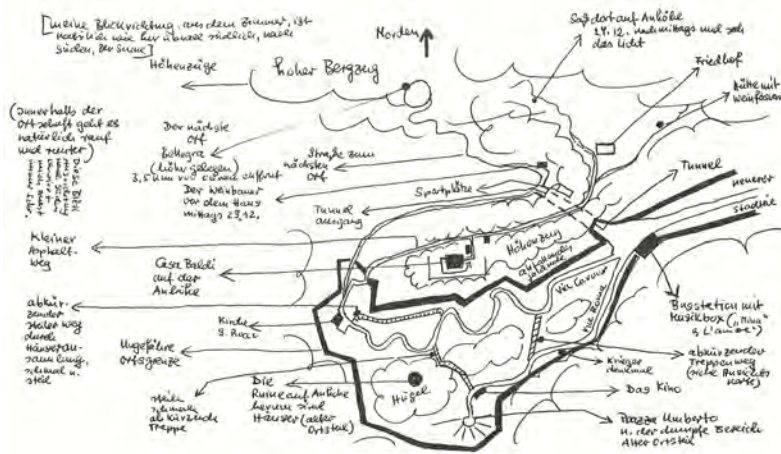 [meine Blickrichtung, aus dem Zimmer, ist
natürlich wie hier überall südlich, nach
Süden, der Sonne]
Norden
Höhenzüge
hoher Bergzug
Saßdorf auf Anhöhe
24.12. nachmittags und sah
das Licht
Friedhof
Hütte mit
weinfässern
(innerhalb der
Ortschaft geht es
natürlich rauf
und runter)
Der nächste
Ort
Bellegra
(höher gelegen)
3,5 km von
entfernt
Der Weinbauer
vor dem Haus
mittags 29.12.
Straße zum
nächsten
Ort
Sportplätze
Tunnel
Tunnel
ausgang
neuerer
Stadtteil
Kleiner
Asphalt-
weg
Casa Baldi
auf der
Anhöhe
Höhenzug
Via Cavour
Via Roma
Busstation mit
Musikbox („Nina"
& L'amore")
abkür-
zender
steiler weg
durch
Häuseran-
sammlung,
schmal u.
steil
Kirche
S. Rocco
Ungefähre
Ortsgrenze
Krieger
denkmal
abkürzender
Treppenweg
(siehe Ansichts
karte)
steile
schmale
abkürzende
Treppe
Die
Ruine auf Anhöhe
herum sind
Häuser (alter
Ortsteil)
Hügel
Das Kino
Piazza Umberto
u. der dumpfe Bereich
Alter Ortsteil